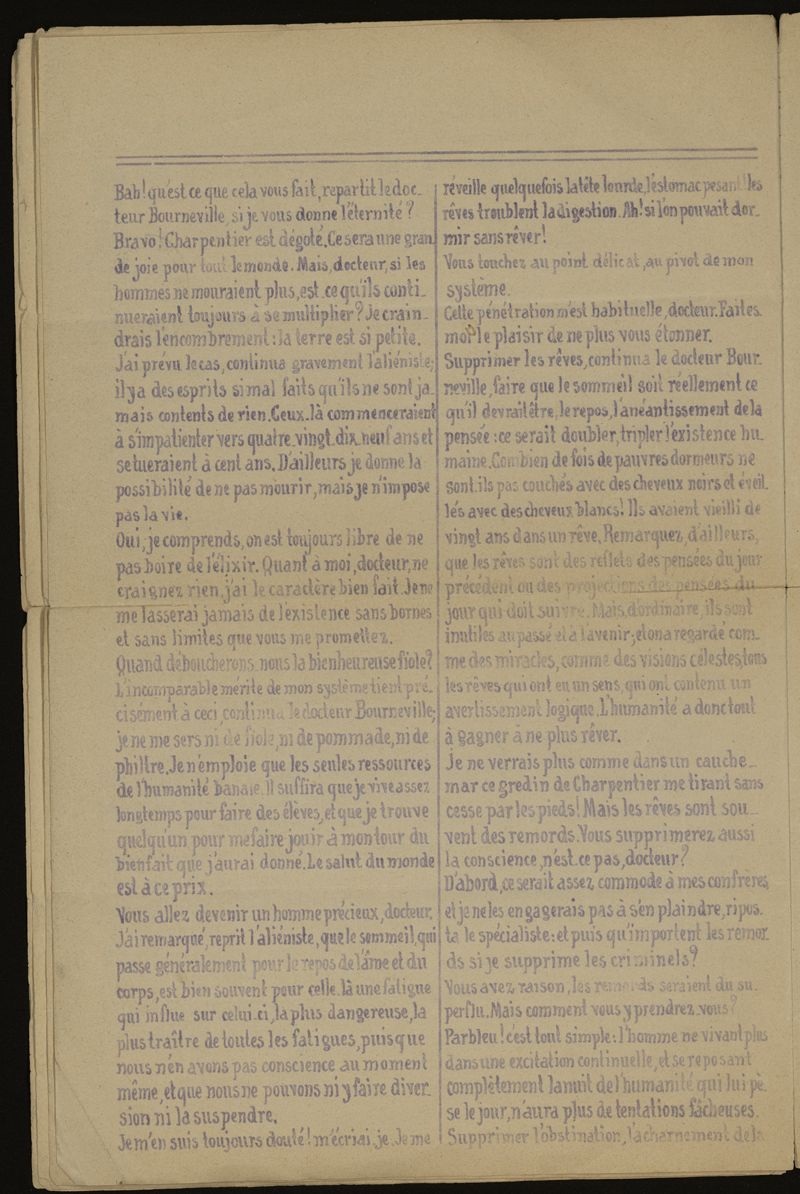 Bah! qu'est ce que cela vous fait, repartit le doc-
teur Bourneville, si je vous donne l'éternité?
Bravo! Charpentier est dégoté. Ce sera une gran
de joie pour tout le monde. Mais, docteur, si les
hommes ne mouraient plus, est-ce qu'ils conti-
nueraient toujours à se multiplier? Je crain-
drais l'encombrement: la terre est si petite.
J'ai prévu le cas, continua gravement l'aliéniste;
il y a des esprits si mal faits qu'ils ne sont ja-
mais contents de rien. Ceux-là commenceraient
à s'impatienter vers quatre-vingt-dix-neuf ans et
se tueraient à cent ans. D'ailleurs je donne la
possibilité de ne pas mourir, mais je n'impose
pas la vie.
Oui, je comprends, on est toujours libre de ne
pas boire de l'élixir. Quant à moi, docteur, ne
craignez rien, j'ai le caractère bien fait. Je ne
me lasserai jamais de l'existence sans bornes
et sans limites que vous me promettez.
Quand déboucherons-nous la bienheureuse fiole?
L'incomparable mérite de mon système tient pré-
cisément à ceci, continua le docteur Bourneville;
je ne me sers ni de fiole, ni de pommade, ni de
philtre. Je n'emploie que les seules ressources
de l'humanité banale. Il suffira que je vive assez
longtemps pour faire des élèves, et que je trouve
quelqu'un pour me faire jouir à mon tour du
bienfait que j'aurai donné. Le salut du monde
est à ce prix.
Vous allez devenir un homme précieux, docteur.
J'ai remarqué, reprit l'aliéniste, que le sommeil, qui
passe généralement pour le repos de l'âme et du
corps, est bien souvent pour celle-là une fatigue
qui influe sur celui-ci, la plus dangereuse, la
plus traître de toutes les fatigues, puisque
nous n'en avons pas conscience au moment
même, et que nous ne pouvons ni y faire diver-
sion ni la suspendre.
Je m'en suis toujours douté! m'écriai-je. Je me
réveille quelquefois la tête lourde, l'estomac pesant les
rêves troublent la digestion. Ah! si l'on pouvait dor-
mir sans rêver!
Vous touchez au point délicat, au pivot de mon
système.
Cette pénétration m'est habituelle, docteur. Faites-
moi le plaisir de ne plus vous étonner.
Supprimer les rêves, continua le docteur Bour-
neville, faire que le sommeil soit réellement ce
qu'il devrait être, le repos, l'anéantissement de la
pensée: ce serait doubler, tripler l'existence hu-
maine. Combien de fois de pauvres dormeurs ne
sont-ils pas couchés avec des cheveux noirs et éveil-
lés avec des cheveux blancs! Ils avaient vieilli de
vingt ans dans un rêve. Remarquez, d'ailleurs,
que les rêves sont des reflets des pensées du jour
précédent ou des projections des pensées du
jour qui doit suivre. Mais, d'ordinaire, ils sont
inutiles au passé et à l'avenir; et on a regardé com-
me des miracles, comme des visions célestes, tous
les rêves qui ont eu un sens, qui ont contenu un
avertissement logique. L'humanité a donc tout
à gagner à ne plus rêver.
Je ne verrais plus comme dans un cauche-
mar ce gredin de Charpentier me tirant sans
cesse par les pieds! Mais les rêves sont sou-
vent des remords. Vous supprimerez aussi
la conscience, n'est-ce pas, docteur?
D'abord, ce serait assez commode à mes confrères,
et je ne les engagerais pas à s'en plaindre, ripos-
ta le spécialiste: et puis qu'importent les remor-
ds si je supprime les criminels?
Vous avez raison, les remords seraient du su-
perflu. Mais comment vous y prendrez-vous?
Parbleu! c'est tout simple: l'homme ne vivant plus
dans une excitation continuelle, et se reposant
complètement la nuit de l'humanité qui lui pè-
se le jour, n'aura plus de tentations fâcheuses.
Supprimer l'obstination, l'acharnement de la